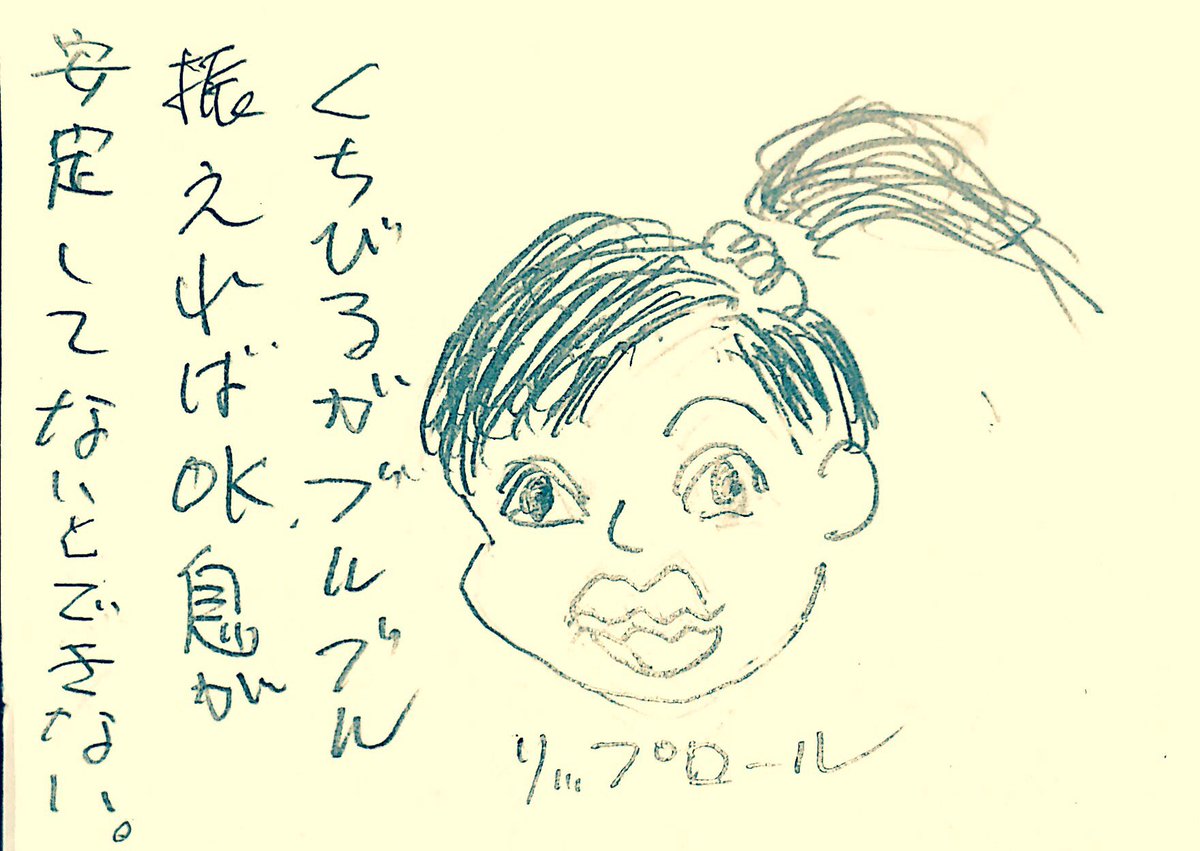 くちびるがブルブル
振えればOK息が
安定してないとできない。
リップロール